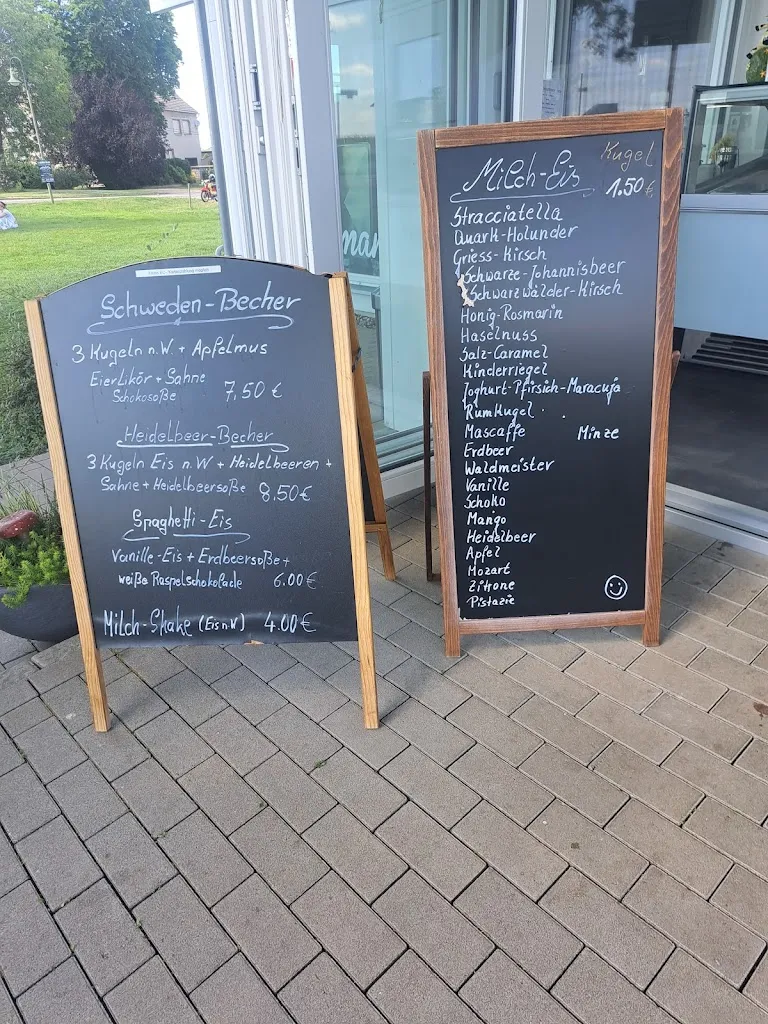 Schweden-Becher
3 Kugeln n.W. + Apfelmus
Eierlikör + Sahne
Schokosoße 7,50 €
Heidelbeer-Becher
3 Kugeln Eis n.W + Heidelbeeren +
Sahne + Heidelbeersoße 8.50€
Spaghetti-Eis
Vanille-Eis + Erdbeersoße +
weiße Raspelschokolade 6.00€
Milch-Shake (Eis n.W) 4.00€
Milch-Eis Kugel
1.50€
Stracciatella
Quark-Holunder
Griess-Kirsch
Schwarze-Johannisbeer
Schwarzwälder-Kirsch
Honig-Rosmarin
Haselnuss
Salz-Caramel
Kinderriegel
Joghurt-Pfirsich-Maracuja
Rumkugel
Mascaffe Minze
Erdbeer
Waldmeister
Vanille
Schoko
Mango
Heidelbeer
Apfel
Mozart
Zitrone
Pistazie